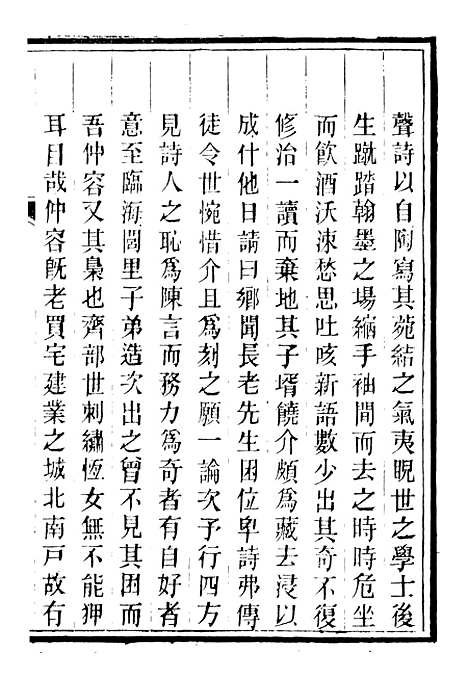 聲詩以自陶寫其菀結之氣夷睨世之學士後
生蹴踏翰墨之場縮手袖間而去之時時危坐
而飲酒沃涑愁思吐咳新語數少出其奇不復
修治一讀而棄地其子壻饒介頗為藏去浸以
成什他日請曰鄉聞長老先生困位卑詩弗傳
徒令世惋惜介且為刻之願一論次予行四方
見詩人之恥為陳言而務力為奇者有自好者
意至臨海閭里子弟造次出之曾不見其困而
吾仲容又其梟也齊部世刺繡恆女無不能狎
耳目哉仲容旣老買宅建業之城北南戸故有